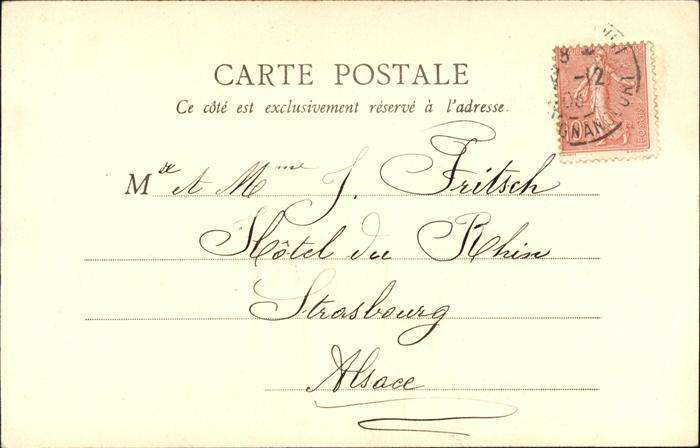 CARTE POSTALE
Ce côté est exclusivement réservé à l'adresse.
M et Mme J. Fritsch
Hôtel du Rhin
Strasbourg
Alsace
10